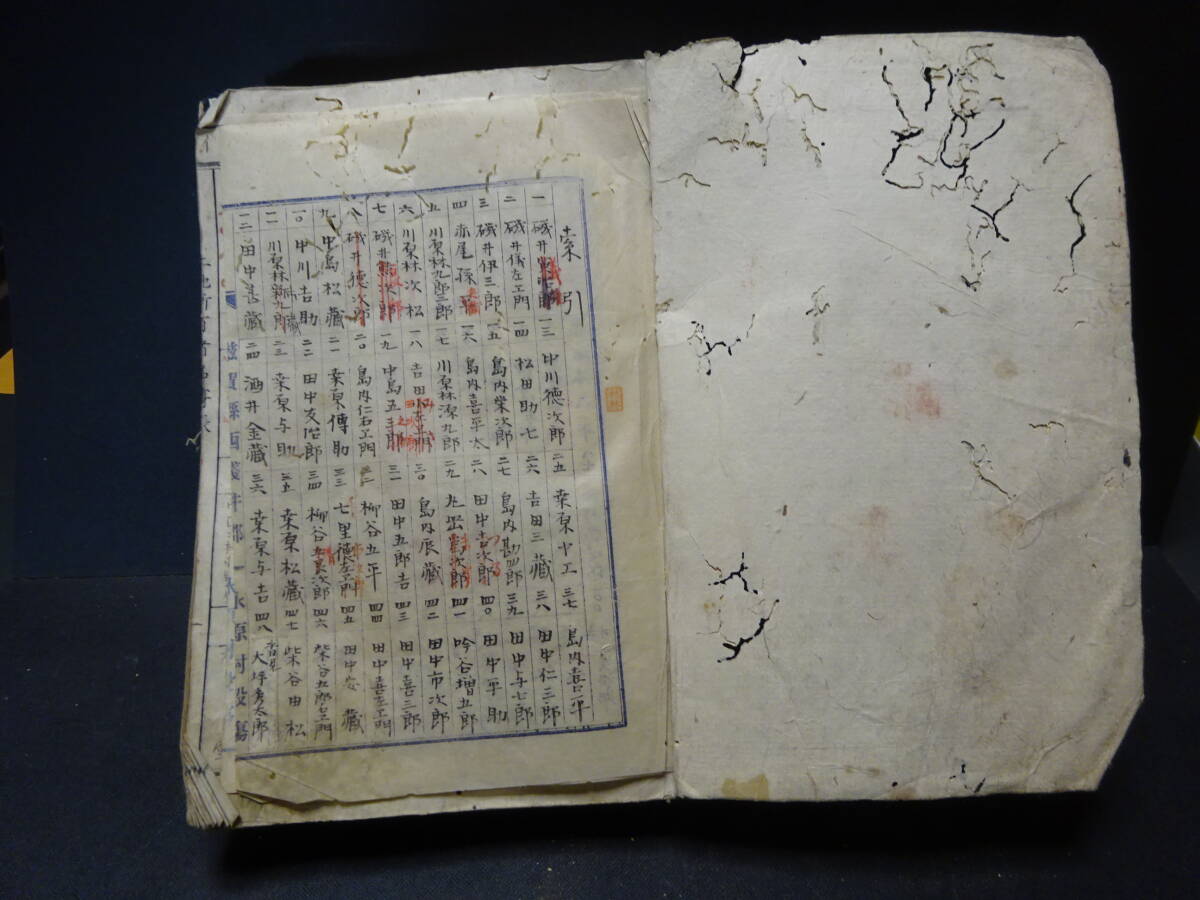 索引
一 磯井
二 磯井儀左エ門
三 磯井伊三郎
四 赤尾孫平
五 川原林九郎三郎
六 川原林次松
七 磯井 次郎
八 磯井徳次郎
九 中島松藏
一〇 中川吉助
一一 川原林新九郎
一二 田中甚藏
一三 中川徳次郎
一四 松田助七
一五 島内栄次郎
一六 島内喜平太
一七 川原林深九郎
一八 吉田
一九 中島五三郎
二〇 島内仁右エ門
二一 桒原傳助
二二 田中友治郎
二三 桒原与助
二四 酒井金藏
二五 桒原ヤエ
二六 吉田三藏
二七 島内勘四郎
二八 田中吉次郎
二九 次郎
三〇 島内辰藏
三一 田中五郎吉
三二 柳谷五平
三三 七里徳左エ門
三四 柳谷 次郎
三五 桒原松藏
三六 桒原与吉
三七 島内喜平
三八 田中仁三郎
三九 田中与七郎
四〇 田中平助
四一 吟谷増五郎
四二 田中市次郎
四三 田中喜三郎
四四 田中喜左エ門
四五 田中安藏
四六 柴谷五郎右エ門
四七 柴谷由松
四八 大坪 太郎
滋賀縣西淺井郡 水原村役塲